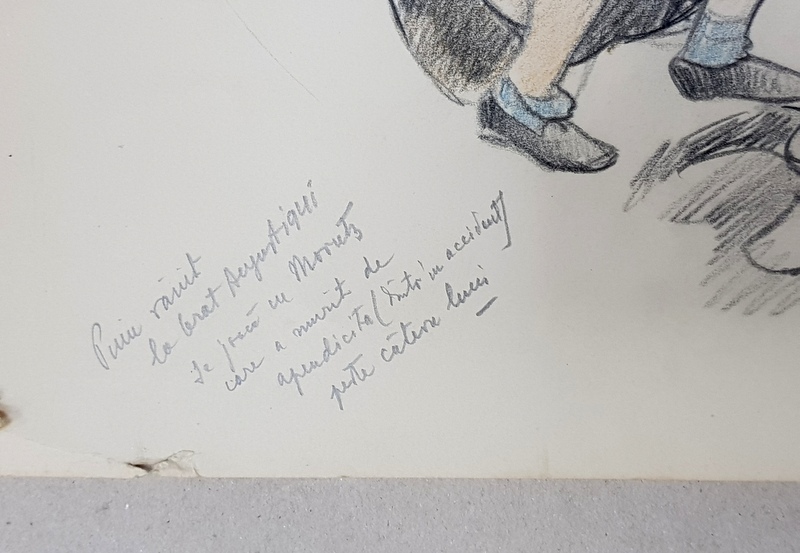 Puiu rănit
la brat Augustiqui
se joacă cu Moruts
care a murit de
apendicita (într'un accident)
peste câteva luni